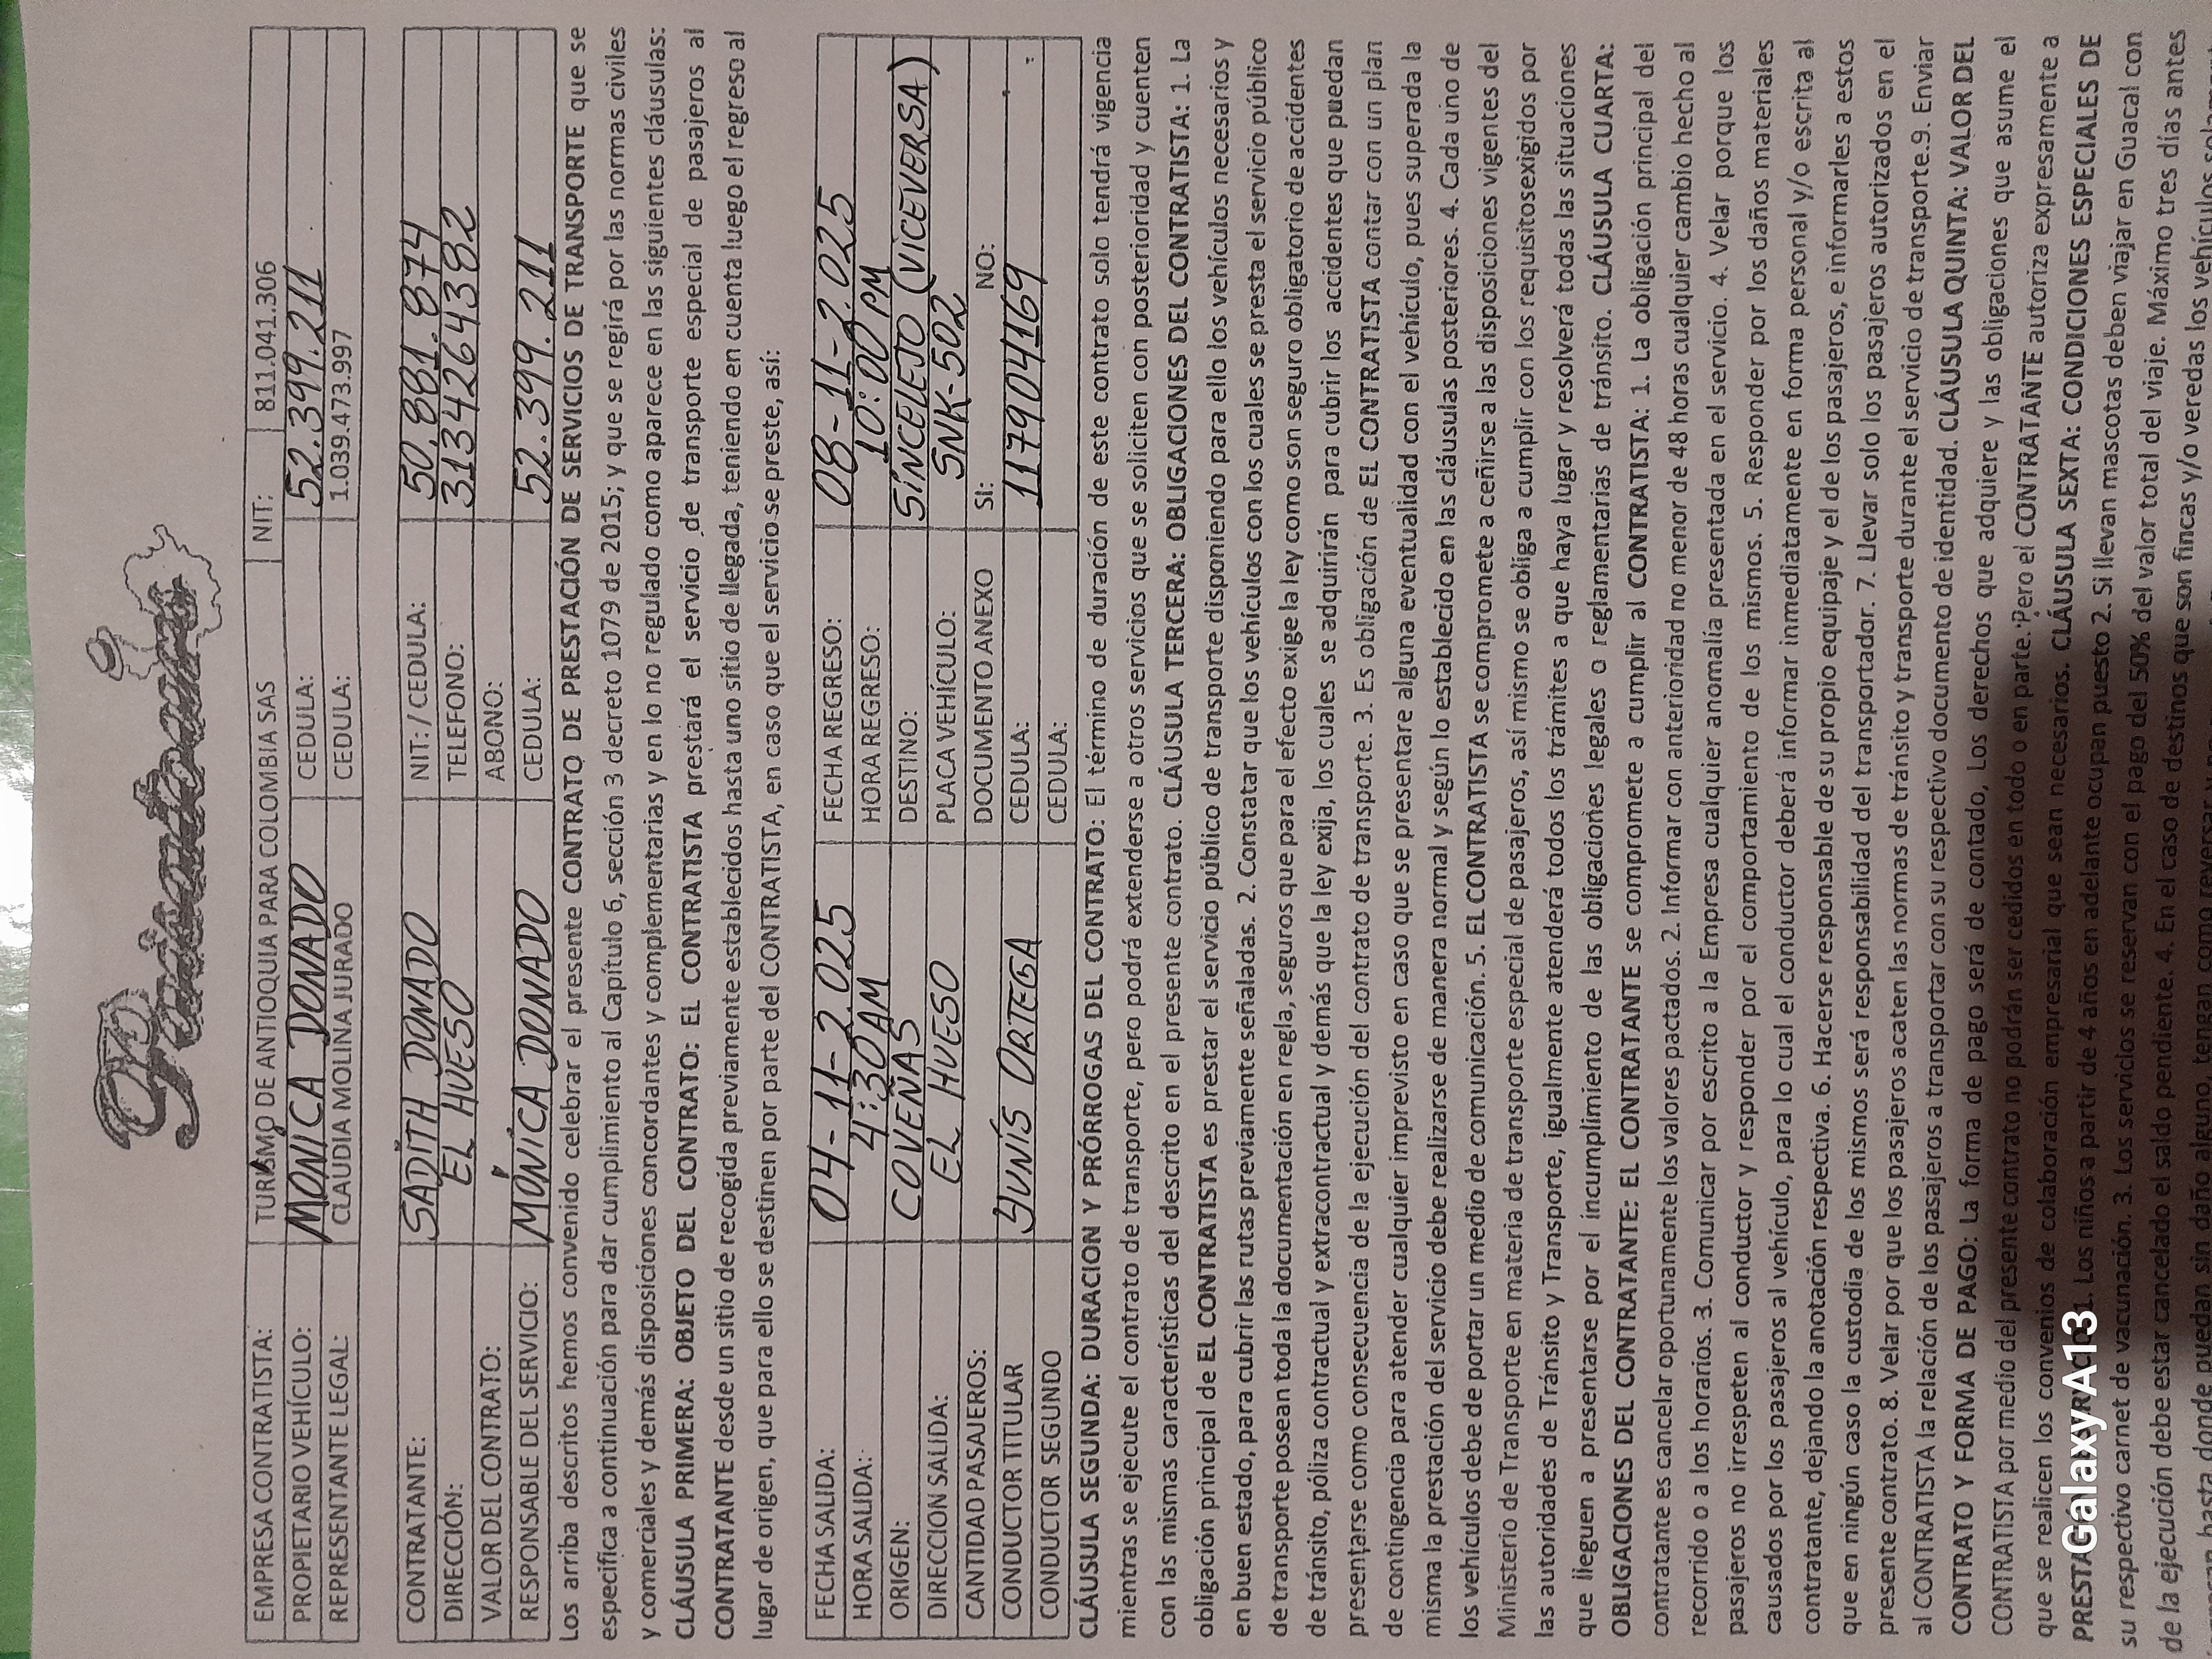 EMPRESA CONTRATISTA: TURISMO DE ANTIOQUIA PARA COLOMBIA SAS NIT: 811.041.306
PROPIETARIO VEHÍCULO: MONICA DONADO CEDULA: 52.399.211
REPRESENTANTE LEGAL: CLAUDIA MOLINA JURADO CEDULA: 1.039.473.997
CONTRATANTE: SADITH DONADO NIT: / CEDULA: 50.881.874
DIRECCIÓN: EL HUESO TELEFONO: 3134264382
VALOR DEL CONTRATO: ABONO:
RESPONSABLE DEL SERVICIO: MONICA DONADO CEDULA: 52.399.211
Los arriba descritos hemos convenido celebrar el presente CONTRATO DE PRESTACIÓN DE SERVICIOS DE TRANSPORTE que se
especifica a continuación para dar cumplimiento al Capítulo 6, sección 3 decreto 1079 de 2015; y que se regirá por las normas civiles
y comerciales y demás disposiciones concordantes y complementarias y en lo no regulado como aparece en las siguientes cláusulas:
CLÁUSULA PRIMERA: OBJETO DEL CONTRATO: EL CONTRATISTA prestará el servicio de transporte especial de pasajeros al
CONTRATANTE desde un sitio de recogida previamente establecidos hasta uno sitio de llegada, teniendo en cuenta luego el regreso al
lugar de origen, que para ello se destinen por parte del CONTRATISTA, en caso que el servicio se preste, así:
FECHA SALIDA: 04-11-2.025 FECHA REGRESO: 08-11-2.025
HORA SALIDA: 4:30 AM HORA REGRESO: 10:00 PM
ORIGEN: COVEÑAS DESTINO: SINCELEJO (VICEVERSA)
DIRECCION SALIDA: EL HUESO PLACA VEHÍCULO: SNK-502
CANTIDAD PASAJEROS: DOCUMENTO ANEXO SI: NO:
CONDUCTOR TITULAR YUNIS ORTEGA CEDULA: 117904169
CONDUCTOR SEGUNDO CEDULA:
CLÁUSULA SEGUNDA: DURACION Y PRÓRROGAS DEL CONTRATO: El término de duración de este contrato solo tendrá vigencia
mientras se ejecute el contrato de transporte, pero podrá extenderse a otros servicios que se soliciten con posterioridad y cuenten
con las mismas características del descrito en el presente contrato. CLÁUSULA TERCERA: OBLIGACIONES DEL CONTRATISTA: 1. La
obligación principal de EL CONTRATISTA es prestar el servicio público de transporte disponiendo para ello los vehículos necesarios y
en buen estado, para cubrir las rutas previamente señaladas. 2. Constatar que los vehículos con los cuales se presta el servicio público
de transporte posean toda la documentación en regla, seguros que para el efecto exige la ley como son seguro obligatorio de accidentes
de tránsito, póliza contractual y extracontractual y demás que la ley exija, los cuales se adquirirán para cubrir los accidentes que puedan
presentarse como consecuencia de la ejecución del contrato de transporte. 3. Es obligación de EL CONTRATISTA contar con un plan
de contingencia para atender cualquier imprevisto en caso que se presentare alguna eventualidad con el vehículo, pues superada la
misma la prestación del servicio debe realizarse de manera normal y según lo establecido en las cláusulas posteriores. 4. Cada uno de
los vehículos debe de portar un medio de comunicación. 5. EL CONTRATISTA se compromete a ceñirse a las disposiciones vigentes del
Ministerio de Transporte en materia de transporte especial de pasajeros, así mismo se obliga a cumplir con los requisitosexigidos por
las autoridades de Tránsito y Transporte, igualmente atenderá todos los trámites a que haya lugar y resolverá todas las situaciones
que lleguen a presentarse por el incumplimiento de las obligaciones legales o reglamentarias de tránsito. CLÁUSULA CUARTA:
OBLIGACIONES DEL CONTRATANTE: EL CONTRATANTE se compromete a cumplir al CONTRATISTA: 1. La obligación principal del
contratante es cancelar oportunamente los valores pactados. 2. Informar con anterioridad no menor de 48 horas cualquier cambio hecho al
recorrido o a los horarios. 3. Comunicar por escrito a la Empresa cualquier anomalía presentada en el servicio. 4. Velar porque los
pasajeros no irrespeten al conductor y responder por el comportamiento de los mismos. 5. Responder por los daños materiales
causados por los pasajeros al vehículo, para lo cual el conductor deberá informar inmediatamente en forma personal y/o escrita al
contratante, dejando la anotación respectiva. 6. Hacerse responsable de su propio equipaje y el de los pasajeros, e informarles a estos
que en ningún caso la custodia de los mismos será responsabilidad del transportador. 7. Llevar solo los pasajeros autorizados en el
presente contrato. 8. Velar por que los pasajeros acaten las normas de tránsito y transporte durante el servicio de transporte.9. Enviar
al CONTRATISTA la relación de los pasajeros a transportar con su respectivo documento de identidad. CLÁUSULA QUINTA: VALOR DEL
CONTRATO Y FORMA DE PAGO: La forma de pago será de contado, Los derechos que adquiere y las obligaciones que asume el
CONTRATISTA por medio del presente contrato no podrán ser cedidos en todo o en parte. Pero el CONTRATANTE autoriza expresamente a
que se realicen los convenios de colaboración empresarial que sean necesarios. CLÁUSULA SEXTA: CONDICIONES ESPECIALES DE
1. Los niños a partir de 4 años en adelante ocupan puesto 2. Si llevan mascotas deben viajar en Guacal con
su respectivo carnet de vacunación. 3. Los servicios se reservan con el pago del 50% del valor total del viaje. Máximo tres días antes
de la ejecución debe estar cancelado el saldo pendiente. 4. En el caso de destinos que son fincas y/o veredas los vehículos
hasta donde puedan sin daño alguno, tengan como
Galaxy A13